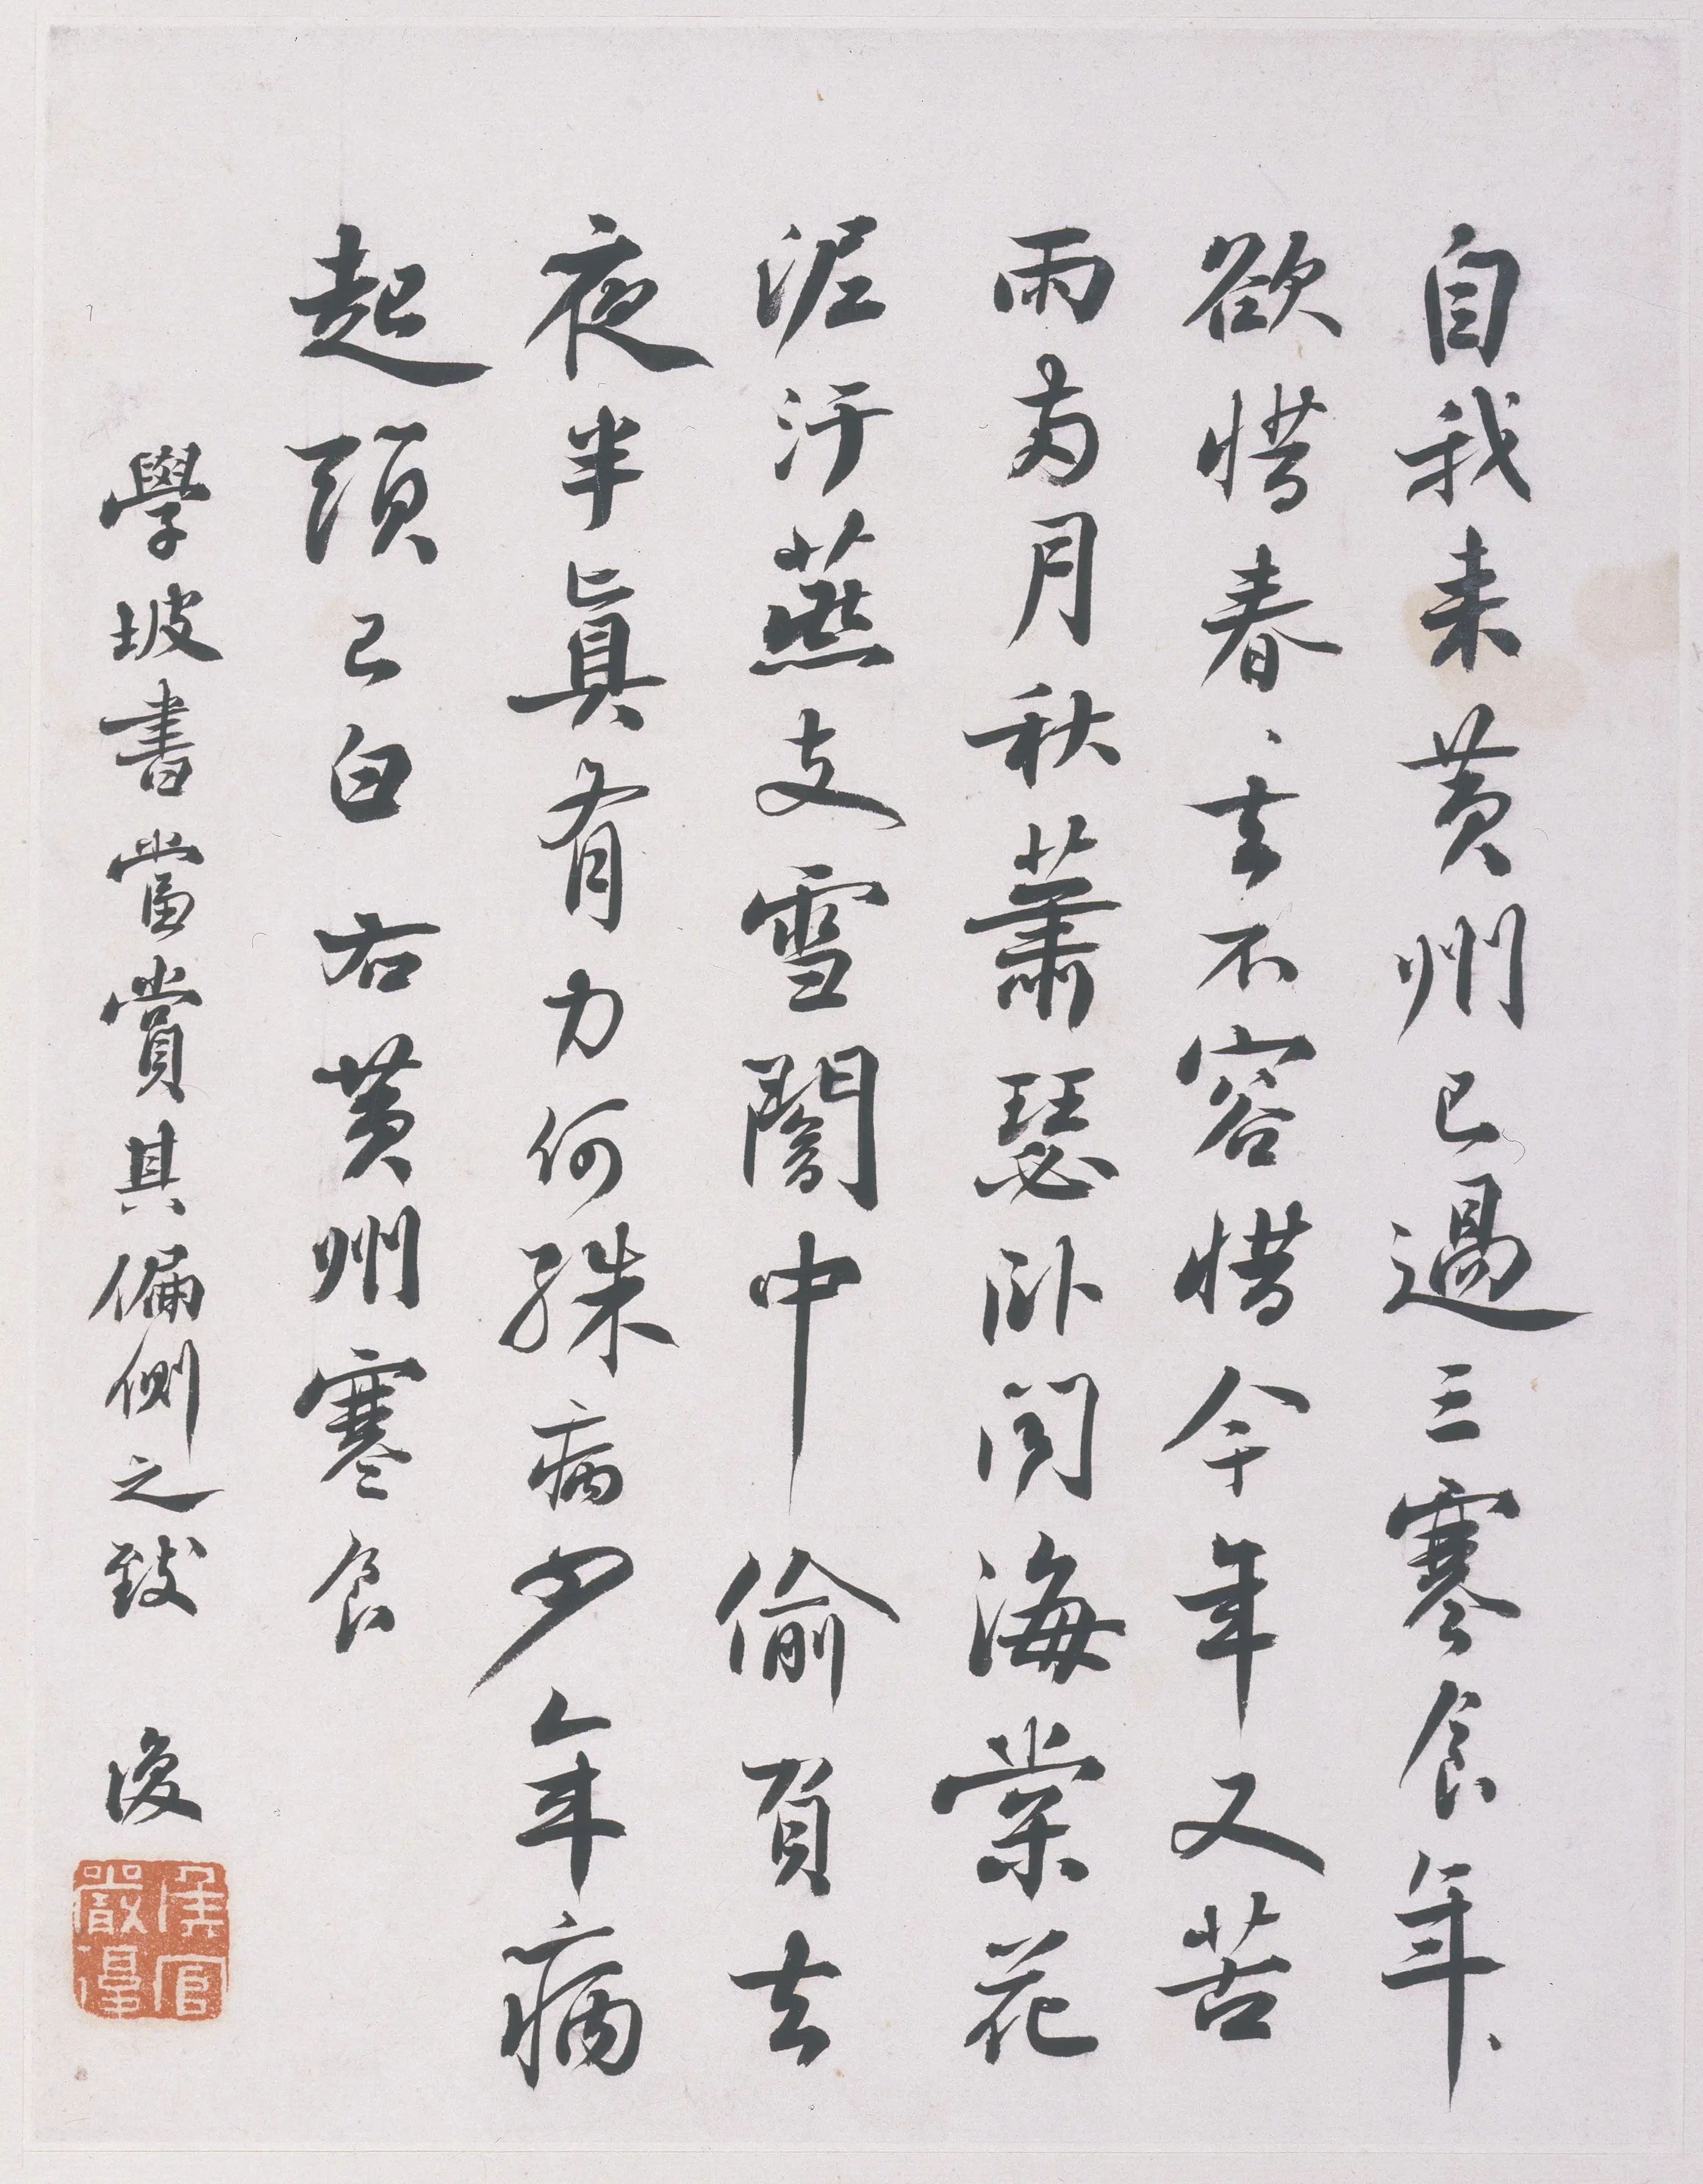 自我来黄州已過三寒食年、
欲惜春、去不容惜今年又苦
雨兩月秋蕭瑟卧聞海棠花
泥汙燕支雪闇中偷負去
夜半眞有力何殊病少年病
起頭已白 右黄州寒食
學坡書當賞其偏側之致 復
侯官
嚴復